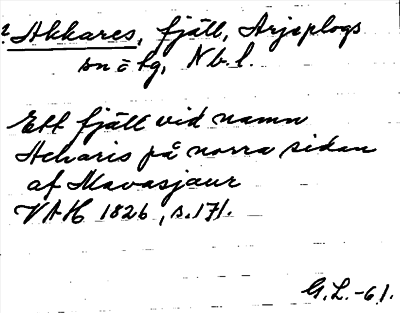 ? Akkares, fjäll, Arjeplogs
sn = tg, Nb. l.
Ett fjäll vid namn
Acharis på norra sidan
af Mavasjaur
VAH 1826, s. 171.
G. L. -61.